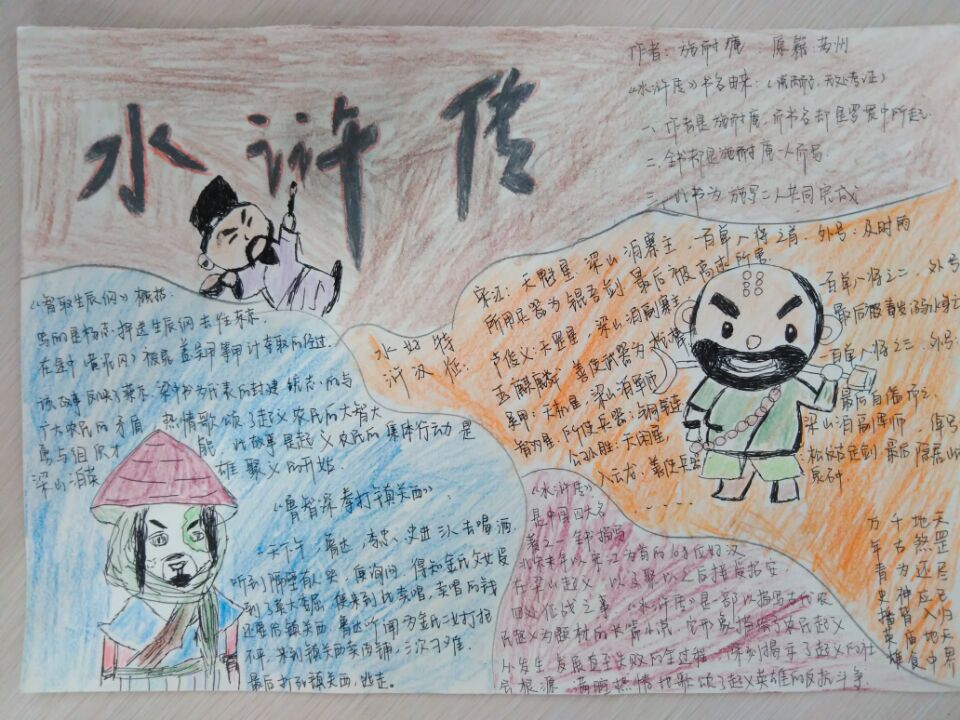 水浒传
作者：施耐庵 原籍：苏州
《水浒传》书名由来：
一、作者是施耐庵，而书名却是罗贯中所起
二、全书都是施耐庵一人所写
三、此书为施罗二人共同完成
《智取生辰纲》概括：
写的是杨志押送生辰纲去往东京
在途中（黄泥冈）被晁盖吴用等用计夺取的经过
该故事反映了蔡京、梁中书为代表的封建统治者与
广大农民的矛盾，热情歌颂了起义农民的大智大
勇与组织才能，此故事是起义农民的集体行动是
梁山泊英雄聚义的开始.
水浒好汉特征：
宋江：天魁星，梁山泊寨主，一百单八将之首，外号：及时雨
所用兵器为锟吾剑 最后被高俅所害
卢俊义：天罡星，梁山泊副寨主，一百单八将之二，外号：
玉麒麟，善使武器为
吴用：天机星，梁山泊军师，一百单八将之三，外号：
智多星，所使兵器：铜链 最后自缢而亡
公孙胜：天闲星，梁山泊副军师
入云龙，善使兵器：松纹古定剑，最后隐居山
......
《鲁智深拳打镇关西》：
一天下午，鲁达，李忠，史进三人去喝酒，
听到隔壁有人哭，便询问，得知金氏父女受
到了莫大委屈，便来到此卖唱，卖唱的钱
还要给镇关西，鲁达听闻为金氏父女打抱
不平，来到镇关西卖肉铺，三次刁难，
最后打死镇关西，逃走。
《水浒传》
是中国四大名
著之一，全书描写
北宋末年以宋江为首的108位好汉
在梁山起义，以及聚义之后接受招安、
四处征战之事，《水浒传》是一部以描写古代农
民起义为题材的长篇小说，它形象描绘了农民起义
从发生、发展直至失败的全过程，深刻揭示了起义的社
会根源，满腔热情地歌颂了起义英雄的反抗斗争
万千地天
年古煞罡
青为还尽
史神应已
播皆父归
英庙地天
雄食中界